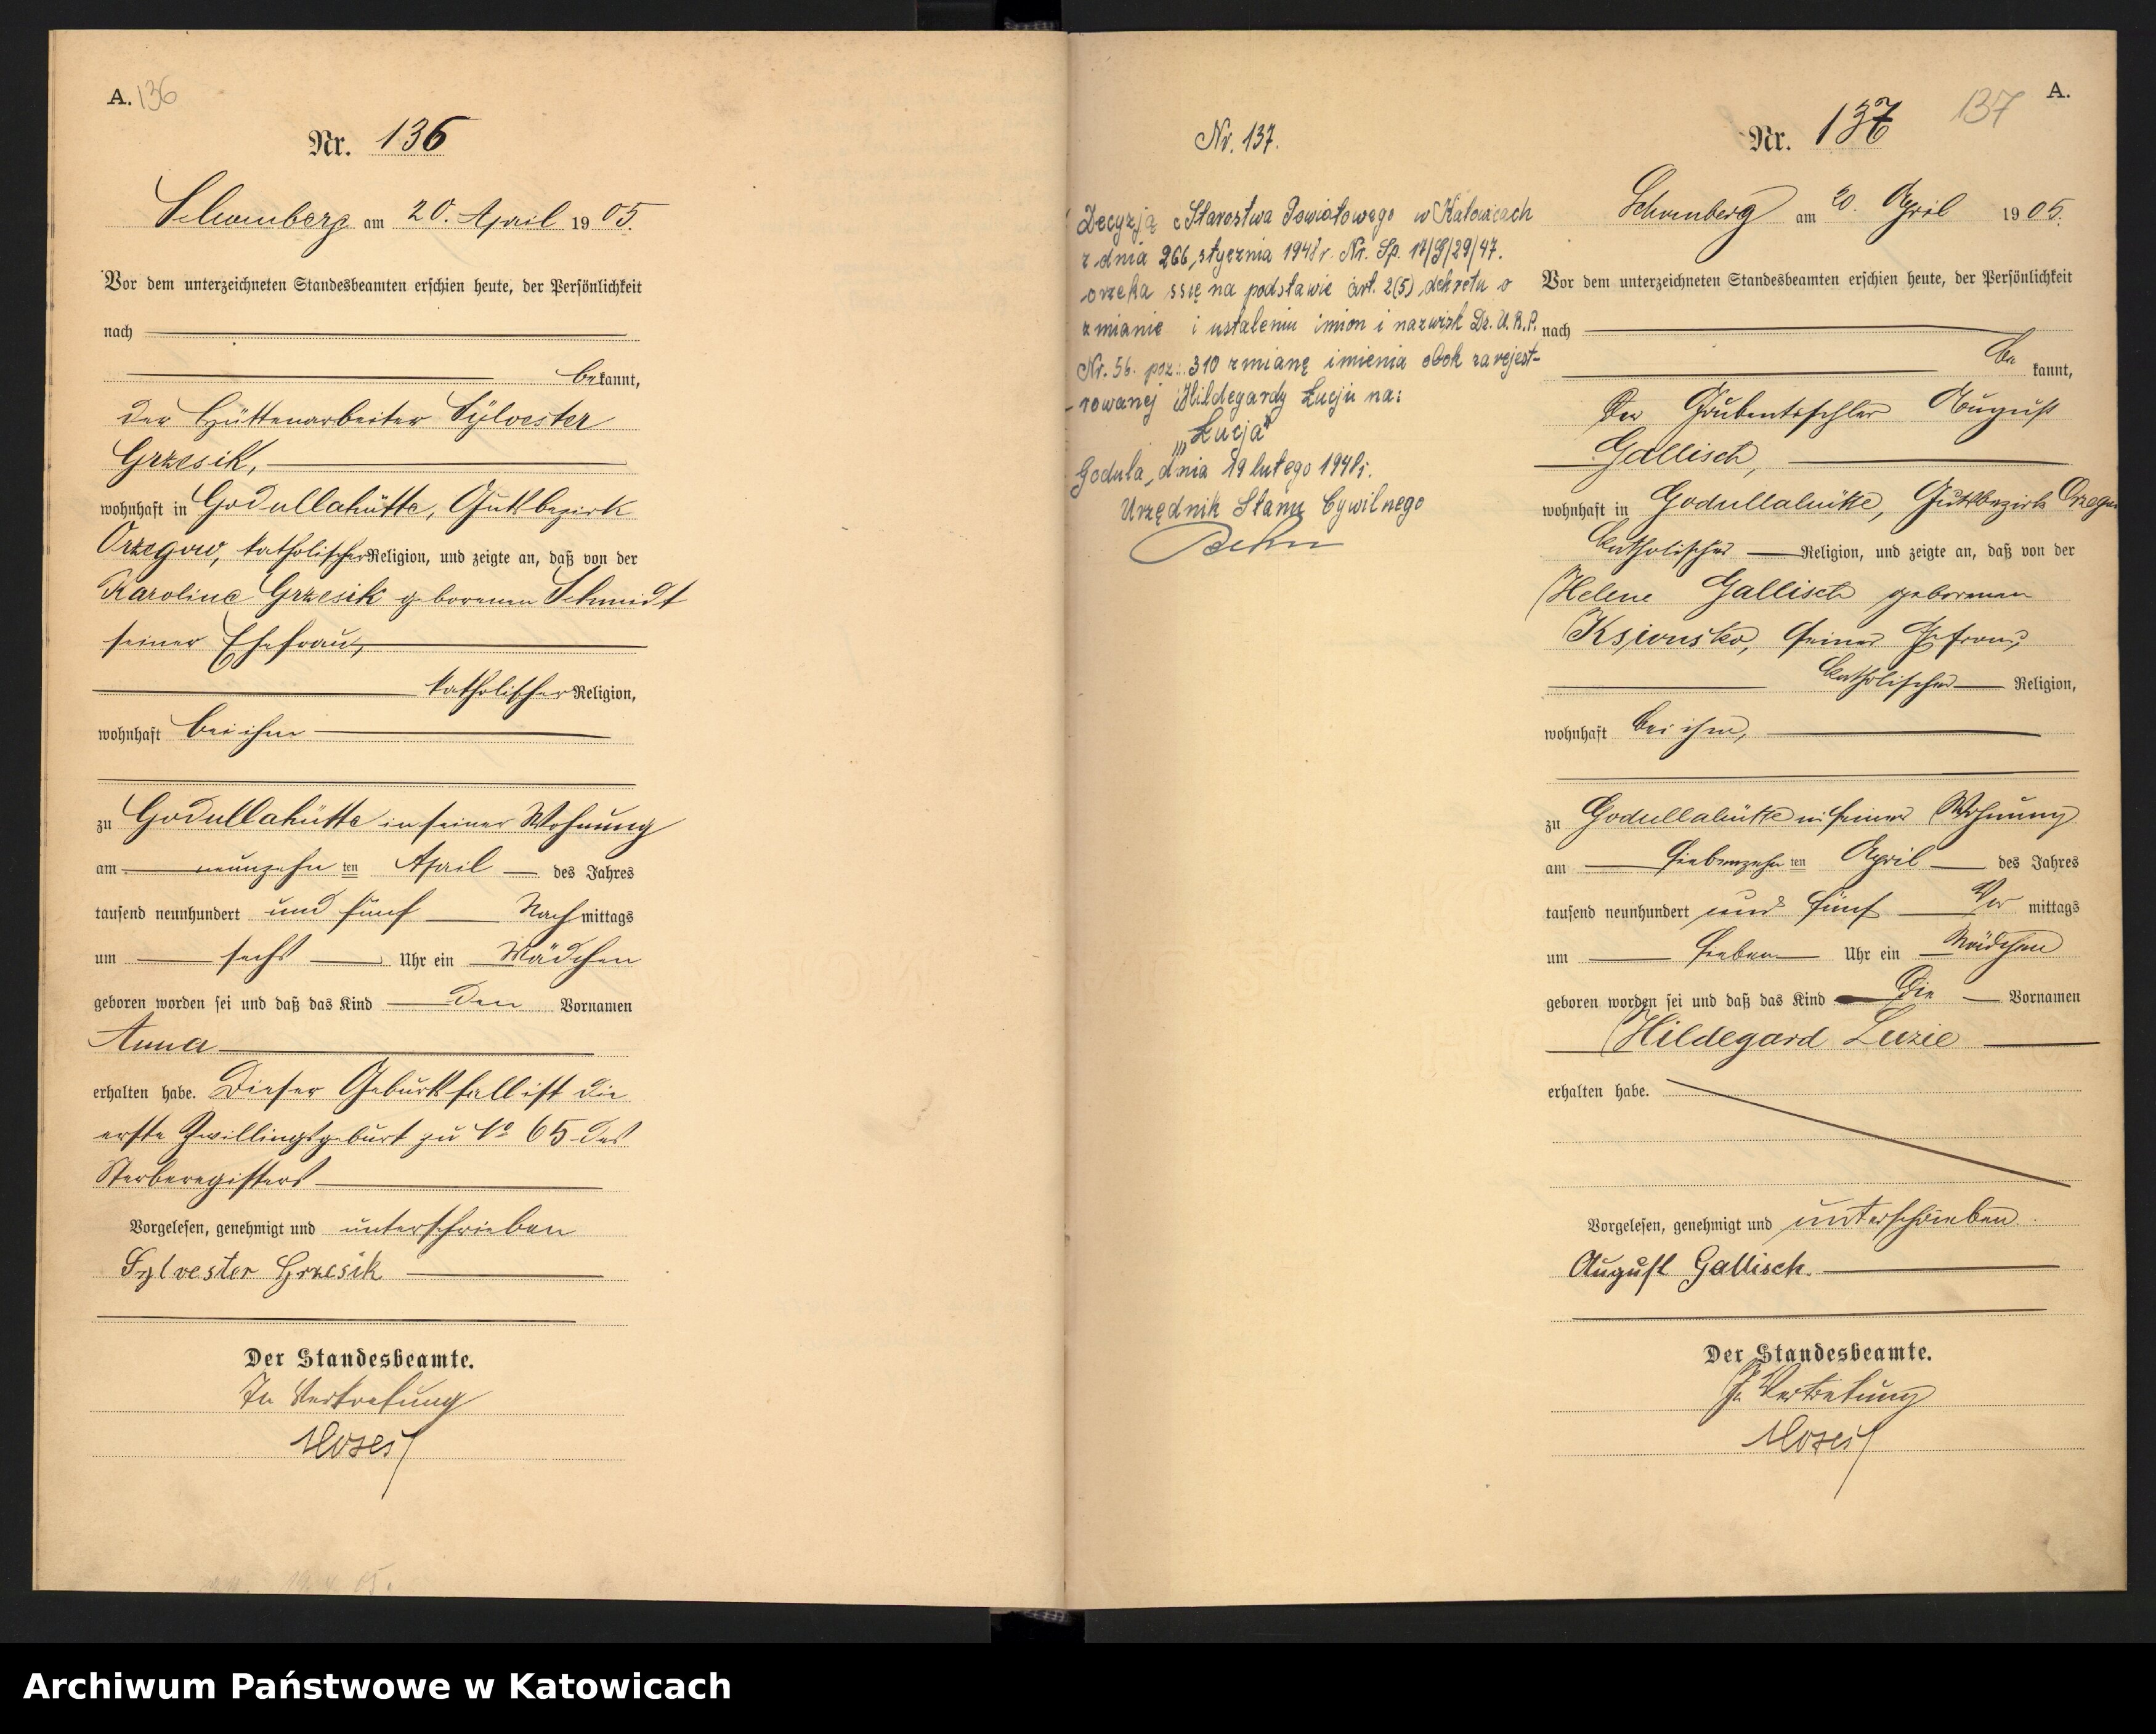 A. 136
Nr. 136
Schomberg am 20. April 1905.
Vor dem unterzeichneten Standesbeamten erschien heute, der Persönlichkeit
nach
bekannt,
der Hüttenarbeiter Sylvester
Grzesik,
wohnhaft in Godullahütte, Gutsbezirk
Orzegow, katholischer Religion, und zeigte an, daß von der
Karoline Grzesik geborenen Schmidt
seiner Ehefrau,
katholischer Religion,
wohnhaft bei ihm
zu Godullahütte in seiner Wohnung
am neunzehnten April des Jahres
tausend neunhundert und fünf Nachmittags
um sechs Uhr ein Mädchen
geboren worden sei und daß das Kind den Vornamen
Anna
erhalten habe. Dieser Geburtsfall ist die
erste Zwillingsgeburt zu No 65 des
Sterberegisters
Vorgelesen, genehmigt und unterschrieben
Sylvester Grzesik
Der Standesbeamte.
In Vertretung
Moses
Nr. 137.
Decyzją Starostwa Powiatowego w Katowicach
z dnia stycznia 1948 r. Nr. Sp. 17/G/29/47.
orzeka się na podstawie art. 2(5) dekretu o
zmianie i ustaleniu imion i nazwisk Dz. U. R. P.
Nr. 56. poz. 310 zmianę imienia obok zarejest-
rowanej Hildegardy Łucji na:
„Łucja"
Godula, dnia 19 lutego 1948 r.
Urzędnik Stanu Cywilnego
137 A.
Nr. 137
Schomberg am 20. April 1905.
Vor dem unterzeichneten Standesbeamten erschien heute, der Persönlichkeit
nach
bekannt,
der Grubentischler August
Gallisch,
wohnhaft in Godullahütte, Gutsbezirk Orzegow
katholischer Religion, und zeigte an, daß von der
Helene Gallisch geborenen
seiner Ehefrau,
katholischer Religion,
wohnhaft bei ihm,
zu Godullahütte in seiner Wohnung
am siebenzehnten April des Jahres
tausend neunhundert und fünf Vormittags
um sieben Uhr ein Mädchen
geboren worden sei und daß das Kind die Vornamen
Hildegard Luzie
erhalten habe.
Vorgelesen, genehmigt und unterschrieben.
August Gallisch.
Der Standesbeamte.
In Vertretung
Moses
Archiwum Państwowe w Katowicach